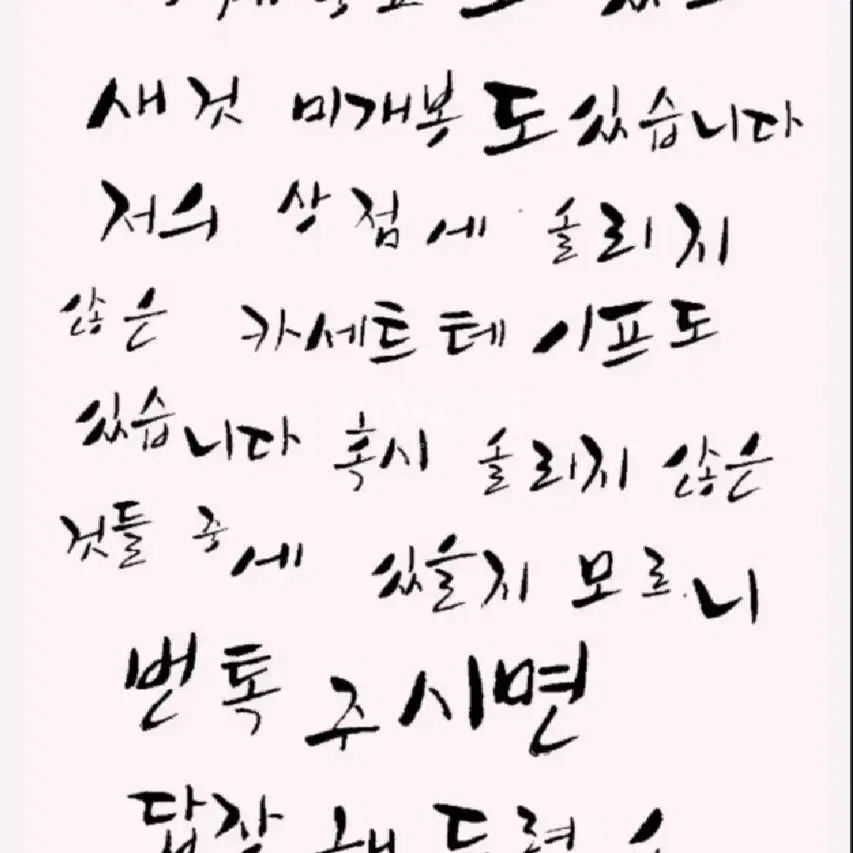 새것 미개봉도 있습니다
저의 상점에 올리지
않은 카세트 테이프도
있습니다 혹시 올리지 않은
것들 중에 있을지 모르니
번톡 주시면
답장 해 드려